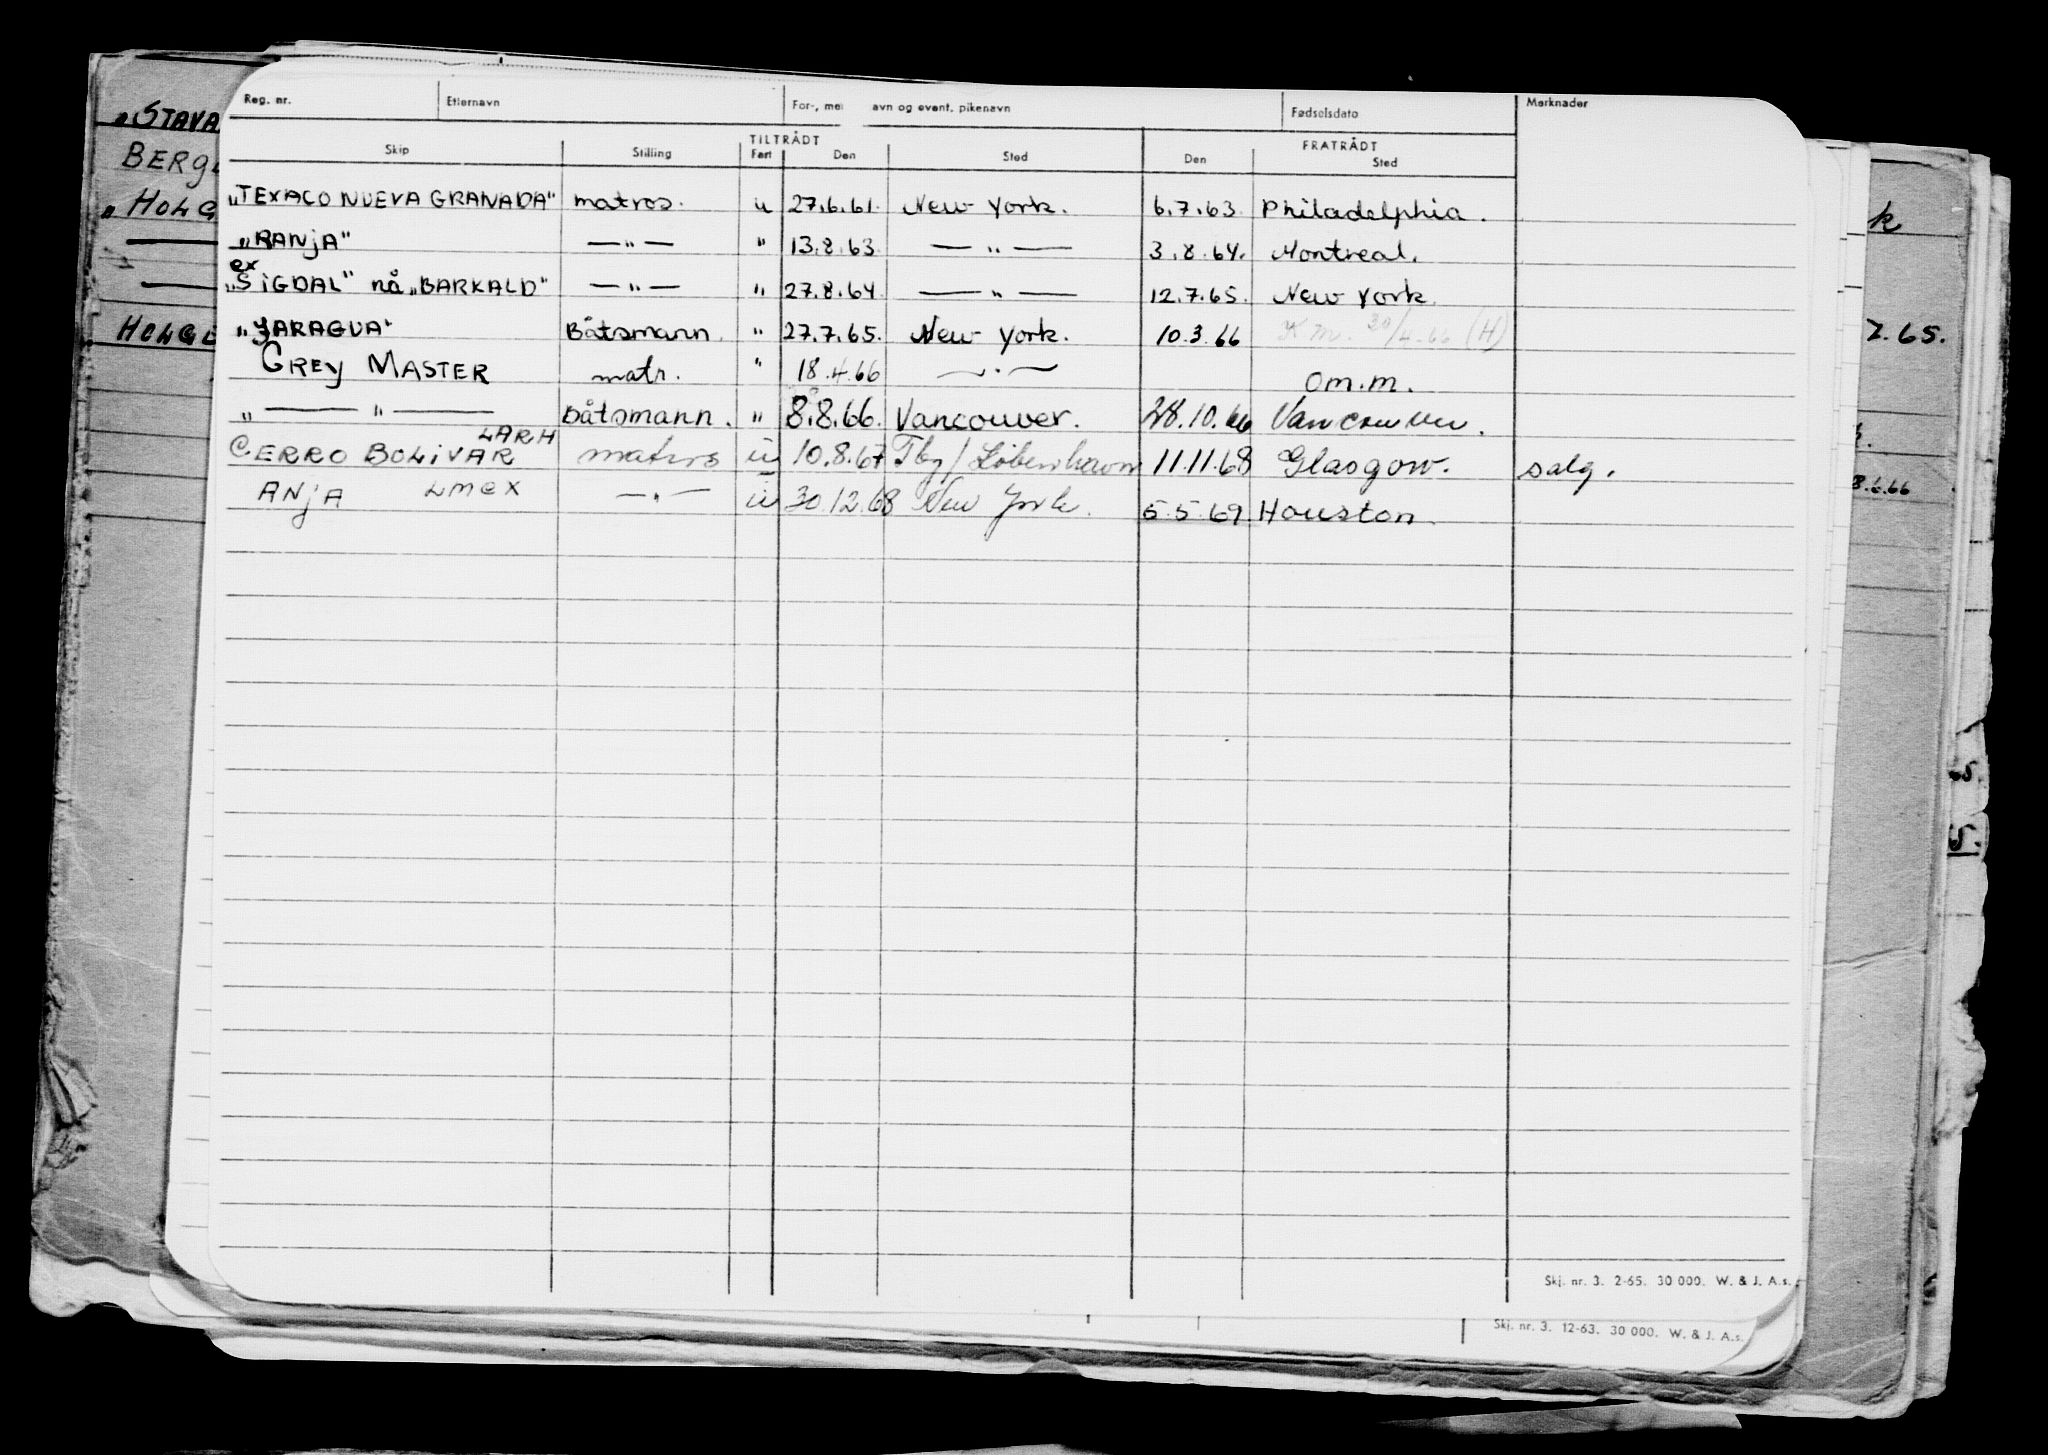 Reg. nr. Etternavn For-, me avn og event. pikenavn Fødselsdato Merknader
TILTRÅDT FRATRÅDT
Skip Stilling Fart Den Sted Den Sted
"TEXACO NUEVA GRANADA" matros. u 27.6.61. New York. 6.7.63. Philadelphia.
"RANJA" — " — " 13.8.63. — " — 3.8.64. Montreal.
ex
"SIGDAL" nå "BARKALD" — " — " 27.8.64. — " — 12.7.65. New York.
"YARAGUA" Båtsmann. " 27.7.65. New York. 10.3.66 K m. 30/4.66 (H)
GREY MASTER matr. " 18.4.66 — " — om.m.
" — " — Båtsmann. " 8.8.66. Vancouver. 28.10.66 Vancouver.
CERRO BOLIVAR LARH matros u 10.8.67 Tbg/ København 11.11.68 Glasgow. salg.
ANJA LMEX — " — u 30.12.68 New York. 5.5.69 Houston
"STAVA
BERGE
"HOLG
HOLGE
k
7.65.
8.6.66
5.
5.
Skj. nr. 3. 2-65. 30 000. W. & J. A.s.
Skj. nr. 3. 12-63. 30 000. W. & J. A.s.